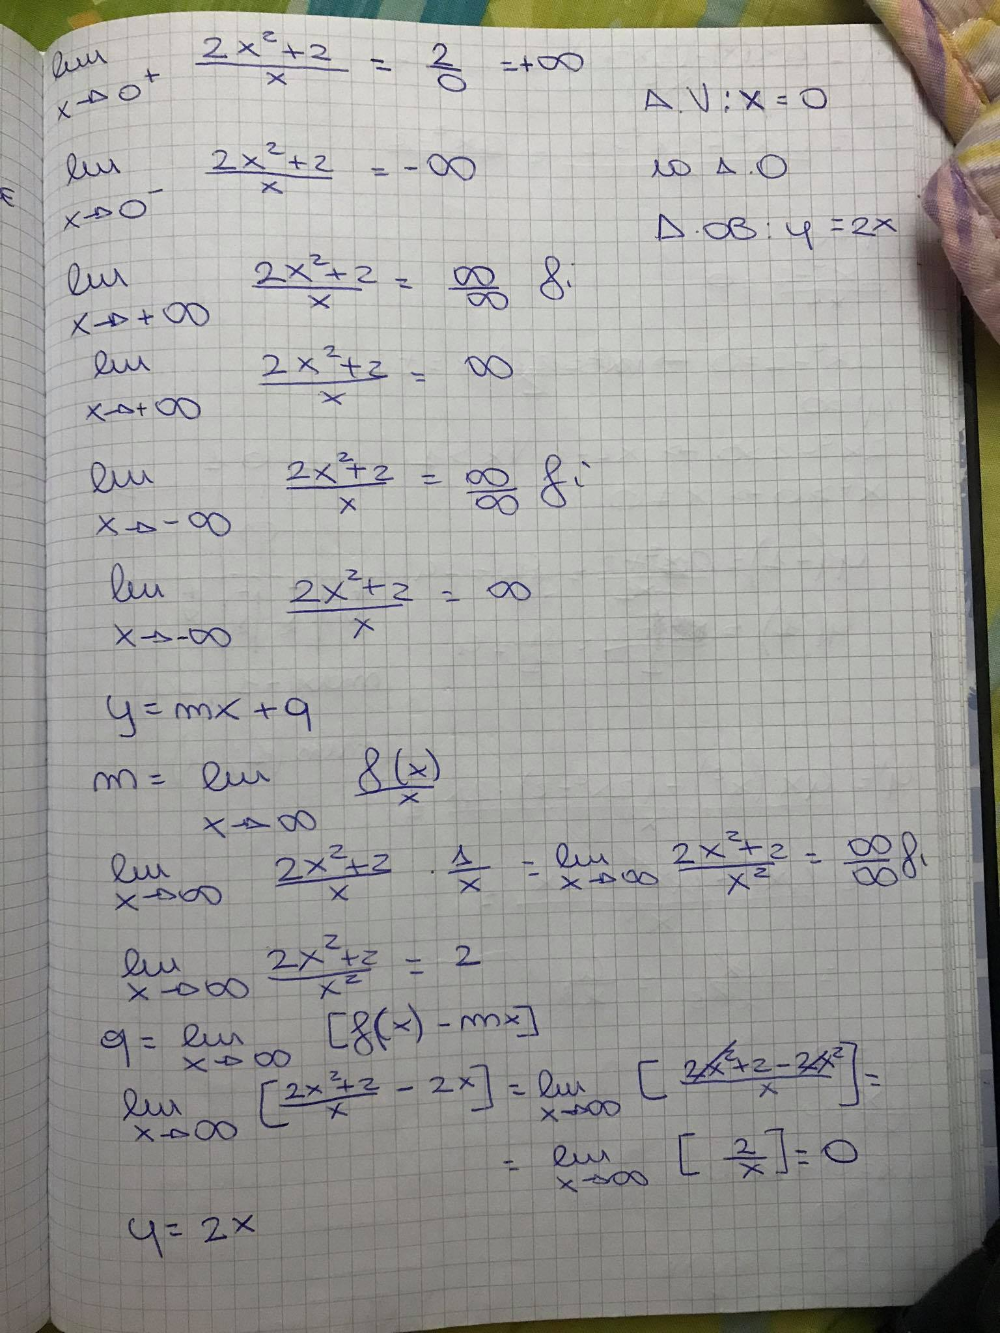 lim x→0⁺ (2x²+2)/x = 2/0 = +∞
A.V: x = 0
lim x→0⁻ (2x²+2)/x = -∞
no A.O
A.OB: y = 2x
lim x→+∞ (2x²+2)/x = ∞/∞ f.i
lim x→+∞ (2x²+2)/x = ∞
lim x→-∞ (2x²+2)/x = ∞/∞ f.i
lim x→-∞ (2x²+2)/x = ∞
y = mx + q
m = lim x→∞ f(x)/x
lim x→∞ (2x²+2)/x · 1/x = lim x→∞ (2x²+2)/x² = ∞/∞ f.i
lim x→∞ (2x²+2)/x² = 2
q = lim x→∞ [f(x) - mx]
lim x→∞ [(2x²+2)/x - 2x] = lim x→∞ [(2x²+2-2x²)/x] =
= lim x→∞ [2/x] = 0
y = 2x